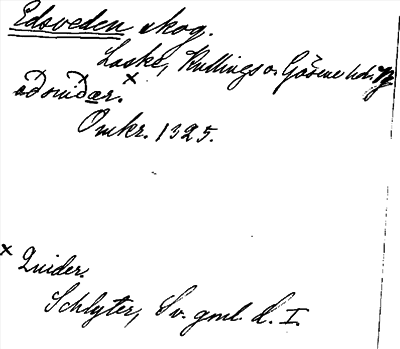 Edsveden skog.
Laske, Kullings o. Gäsene hd.
aðsuiðær. ×
Omkr. 1325.
× Quider.
Schlyter, Sv. gml. L. I.